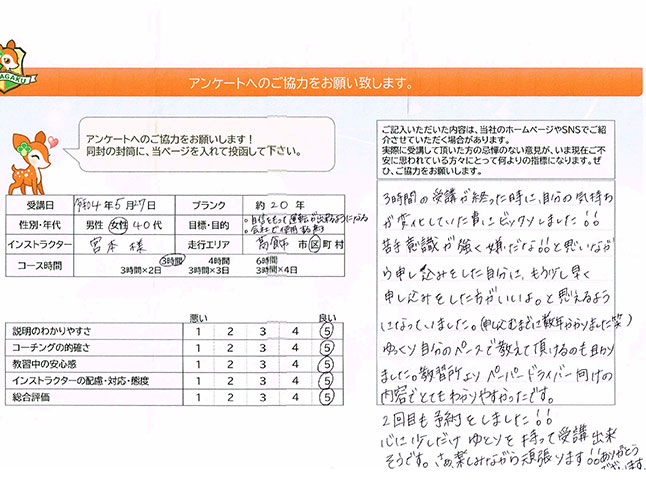 AGAKU
アンケートへのご協力をお願い致します。
アンケートへのご協力をお願いします！
同封の封筒に、当ページを入れて投函して下さい。
受講日 令和4年5月7日 ブランク 約20年
性別・年代 男性 女性 40代 目標・目的 。自信をもって運転が出来るようになる
。会社で使用
インストラクター 宮本様 走行エリア 葛飾 市区町村
コース時間 3時間 4時間 6時間
3時間×2日 3時間×3日 3時間×4日
悪い 良い
説明のわかりやすさ 1 2 3 4 5
コーチングの的確さ 1 2 3 4 5
教習中の安心感 1 2 3 4 5
インストラクターの配慮・対応・態度 1 2 3 4 5
総合評価 1 2 3 4 5
ご記入いただいた内容は、当社のホームページやSNSでご紹
介させていただく場合があります。
実際に受講して頂いた方の忌憚のない意見が、いま現在ご不
安に思われている方々にとって何よりの指標になります。ぜ
ひ、ご協力をお願いします。
3時間の受講が終った時に、自分の気持ち
が変化していた事にビックリしました!!
苦手意識が強く嫌だな!!と思いなが
ら申し込みをした自分に、もう少し早く
申し込みをした方がいいよ。と思えるよう
になっていました。(申し込むまでに数年かかりました笑)
ゆっくり自分のペースで教えて頂けるのも助かり
ました。教習所よりペーパードライバー向けの
内容でとてもわかりやすかったです。
2回目も予約をしました!!
心に少しだけゆとりを持って受講出来
そうです。さぁ楽しみながら頑張ります!!ありがとう
ございます。